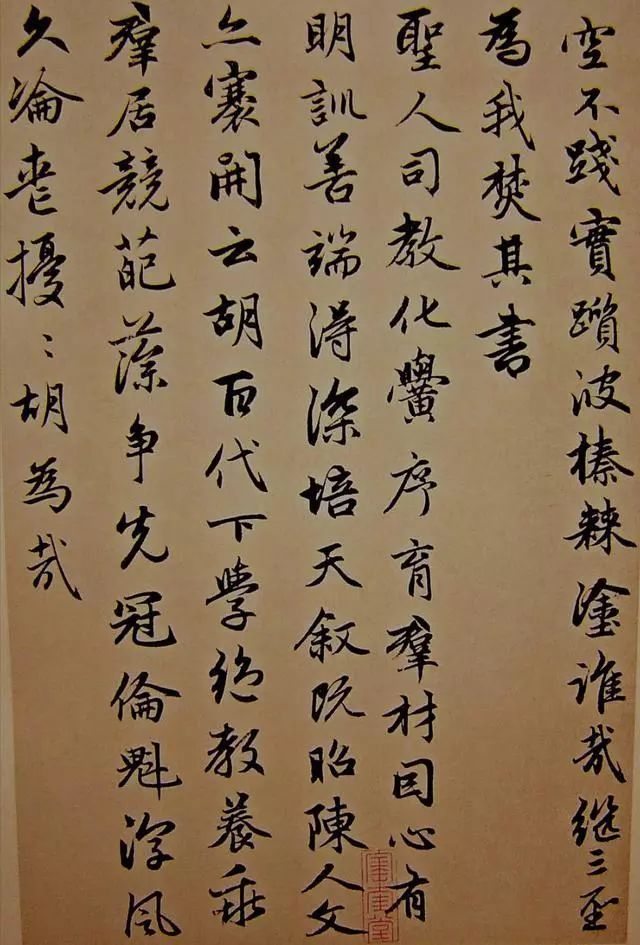 空不踐實躓彼榛棘塗誰哉繼三聖
為我焚其書
聖人司教化黌序育羣材因心有
明訓善端得深培天叙既昭陳人文
亦褰開云胡百代下學絕教養乖
羣居競葩藻争先冠倫魁淳風
久淪喪擾〻胡為哉